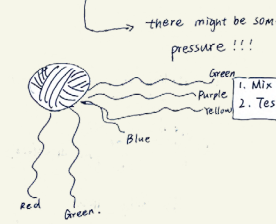 there might be som
pressure !!!
Green
Purple
Yellow
1. Mix
2. Tes
Blue
Red
Green.